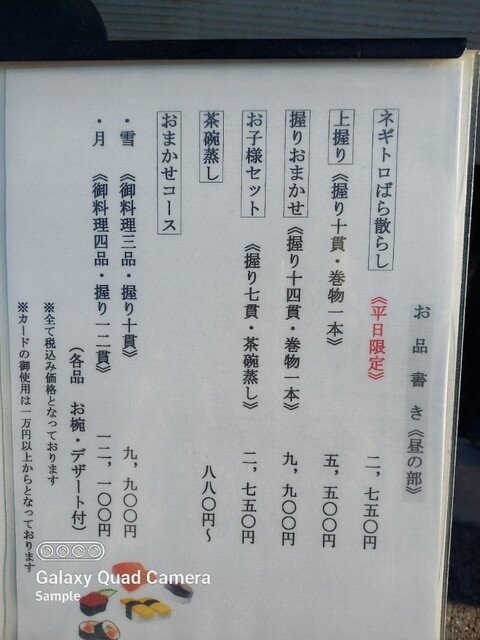 お品書き《昼の部》
ネギトロばら散らし《平日限定》 二,七五〇円
上握り《握り十貫・巻物一本》 五,五〇〇円
握りおまかせ《握り十四貫・巻物一本》 九,九〇〇円
お子様セット《握り七貫・茶碗蒸し》 二,七五〇円
茶碗蒸し 八八〇円〜
おまかせコース
・雪《御料理三品・握り十貫》 九,九〇〇円
・月《御料理四品・握り一二貫》 一二,一〇〇円
(各品 お椀・デザート付)
※全て税込み価格となっております
※カードの御使用は一万円以上からとなっております
Galaxy Quad Camera
Sample